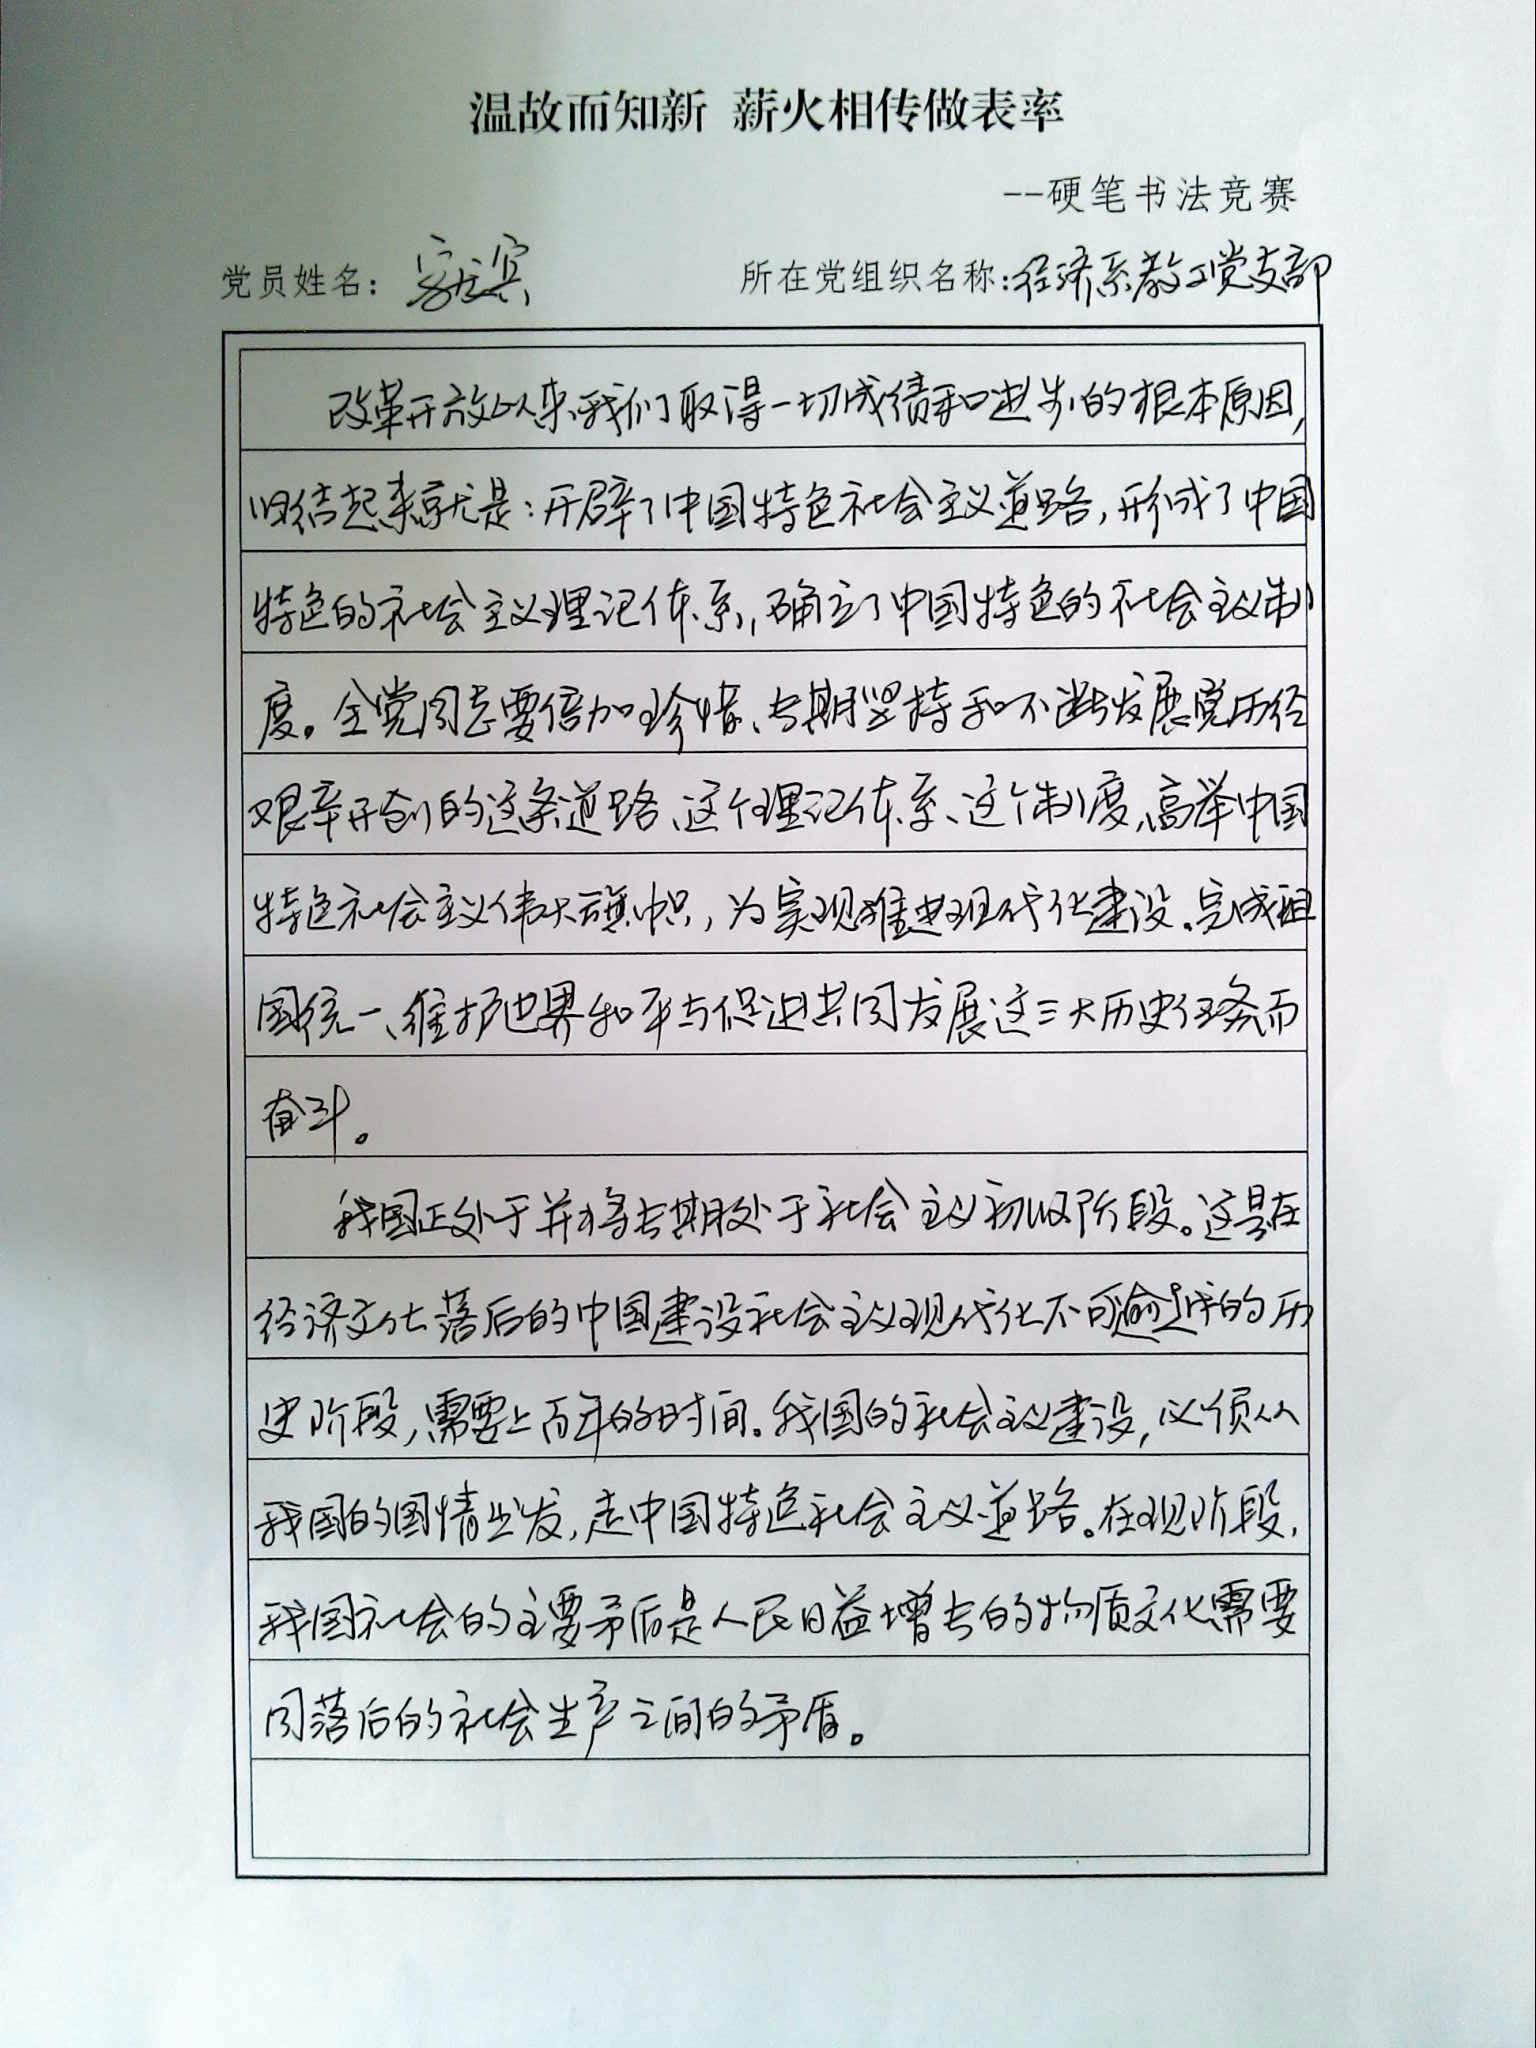 温故而知新 薪火相传做表率
--硬笔书法竞赛
党员姓名： 所在党组织名称：经济系教工党支部
改革开放以来我们取得一切成绩和进步的根本原因，
归结起来就是：开辟了中国特色社会主义道路，形成了中国
特色的社会主义理记体系，确立了中国特色的社会主义制
度。全党同志要倍加珍惜、长期坚持和不断发展党历经
艰辛开创的这条道路、这个理记体系、这个制度，高举中国
特色社会主义伟大旗帜，为实现推进现代化建设、完成祖
国统一、维护世界和平与促进共同发展这三大历史任务而
奋斗。
我国正处于并将长期处于社会主义初级阶段。这是在
经济文化落后的中国建设社会主义现代化不可逾越的历
史阶段，需要上百年的时间。我国的社会主义建设，必须从
我国的国情出发，走中国特色社会主义道路。在现阶段，
我国社会的主要矛盾是人民日益增长的物质文化需要
同落后的社会生产之间的矛盾。